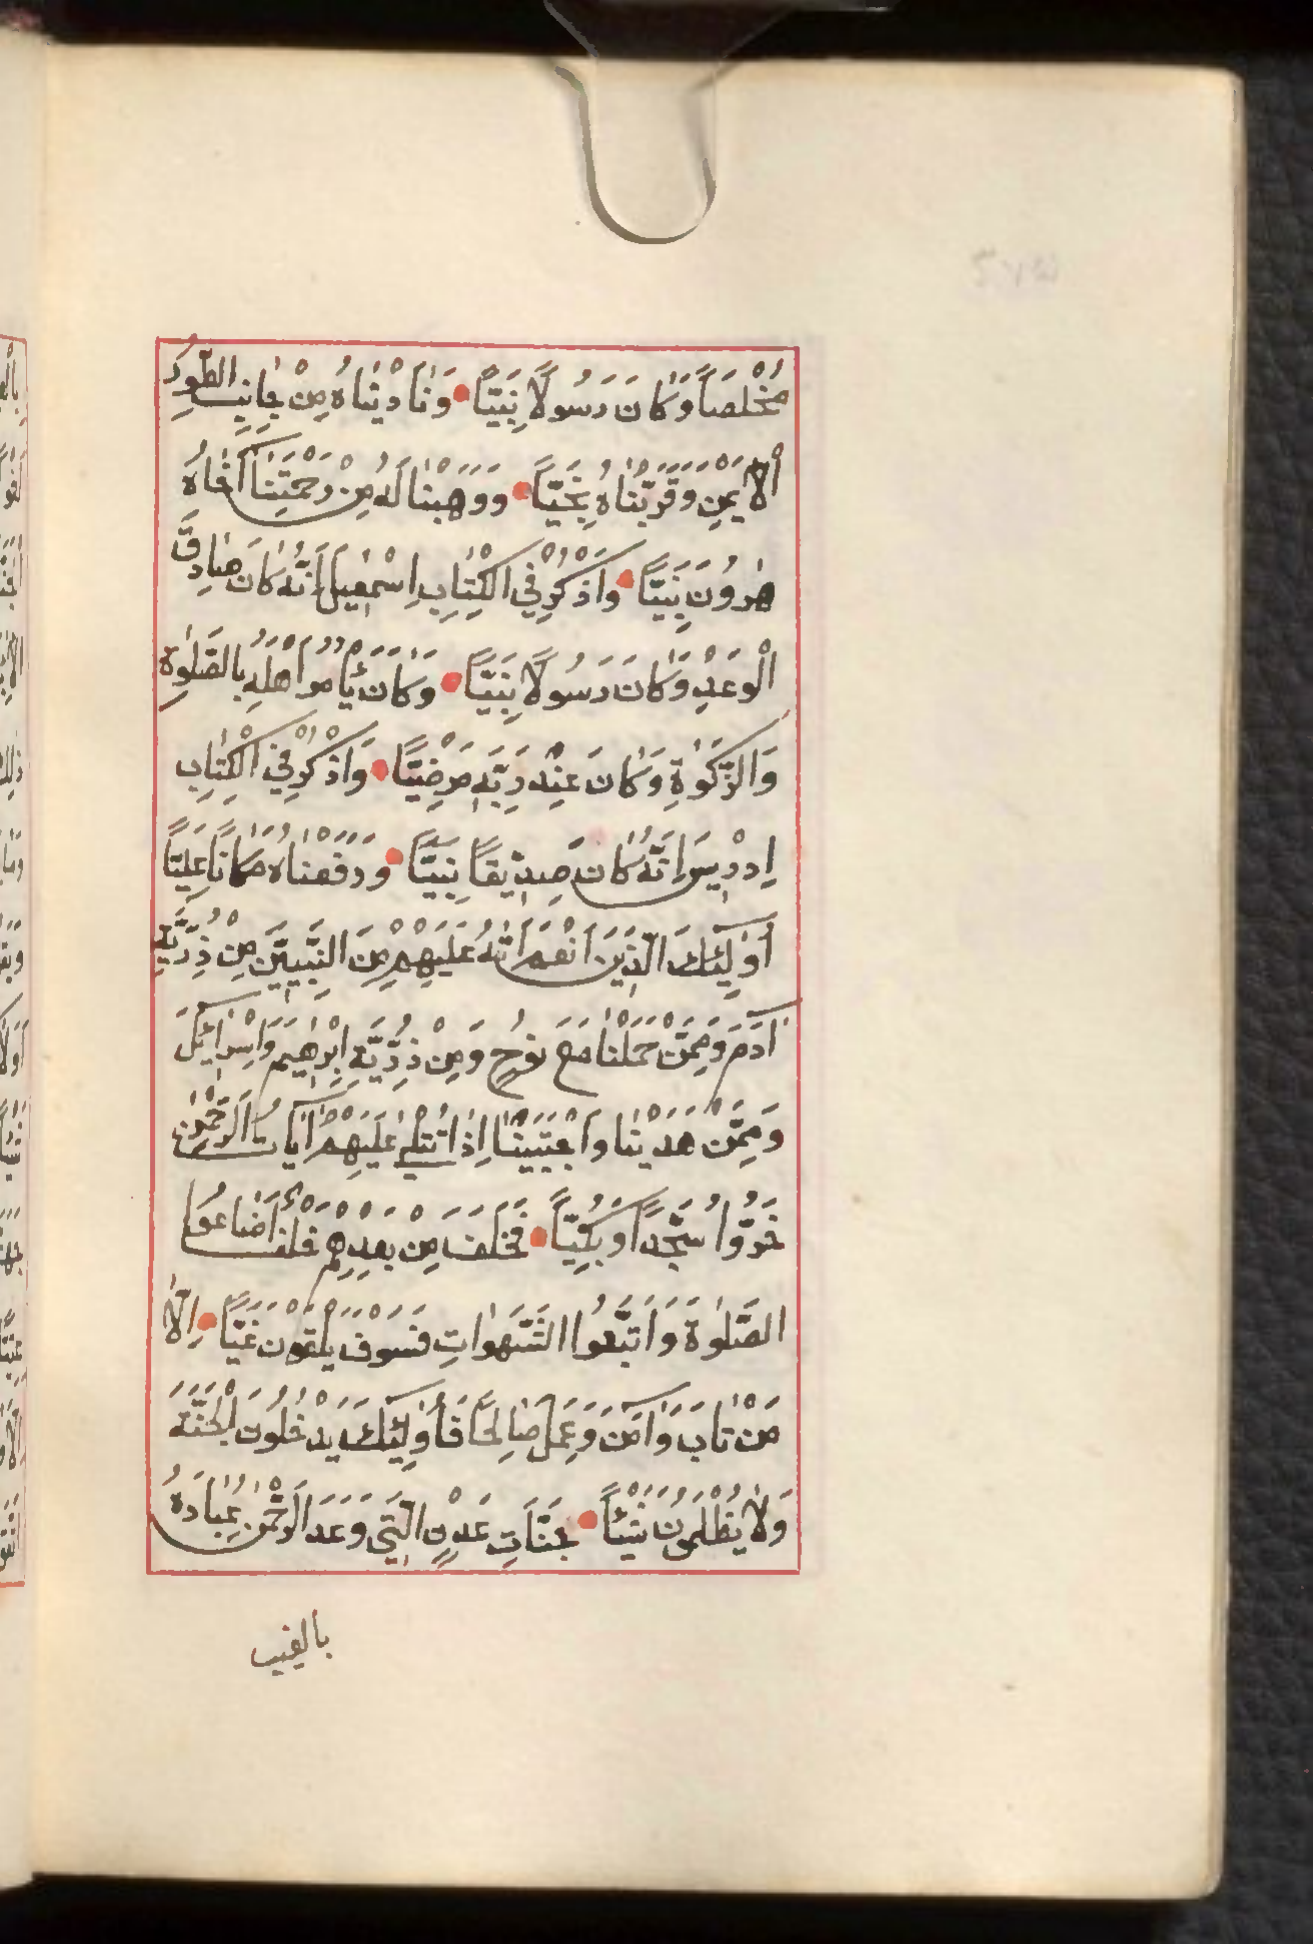 مُخْلَصاً وَكَانَ رَسُولًا نَبِيّاً وَنَادَيْنَاهُ مِنْ جَانِبِ الطُّورِ
الْأَيْمَنِ وَقَرَّبْنَاهُ نَجِيّاً وَوَهَبْنَا لَهُ مِنْ رَحْمَتِنَا أَخَاهُ
هٰرُونَ نَبِيّاً وَاذْكُرْ فِي الْكِتَابِ اِسْمٰعِيلَ اِنَّهُ كَانَ صَادِقَ
الْوَعْدِ وَكَانَ رَسُولًا نَبِيّاً وَكَانَ يَأْمُرُ اَهْلَهُ بِالصَّلٰوةِ
وَالزَّكٰوةِ وَكَانَ عِنْدَ رَبِّهِ مَرْضِيّاً وَاذْكُرْ فِي الْكِتَابِ
اِدْرِيسَ اِنَّهُ كَانَ صِدِّيقاً نَبِيّاً وَرَفَعْنَاهُ مَكَاناً عَلِيّاً
أُولٰئِكَ الَّذِينَ اَنْعَمَ اللهُ عَلَيْهِمْ مِنَ النَّبِيِّينَ مِنْ ذُرِّيَّةِ
اٰدَمَ وَمِمَّنْ حَمَلْنَا مَعَ نُوحٍ وَمِنْ ذُرِّيَّةِ اِبْرٰهِيمَ وَاِسْرَائِيلَ
وَمِمَّنْ هَدَيْنَا وَاجْتَبَيْنَا اِذَا تُتْلٰى عَلَيْهِمْ اٰيَاتُ الرَّحْمٰنِ
خَرُّوا سُجَّداً وَبُكِيّاً فَخَلَفَ مِنْ بَعْدِهِمْ خَلْفٌ اَضَاعُوا
الصَّلٰوةَ وَاتَّبَعُوا الشَّهَوَاتِ فَسَوْفَ يَلْقَوْنَ غَيّاً اِلَّا
مَنْ تَابَ وَاٰمَنَ وَعَمِلَ صَالِحاً فَأُولٰئِكَ يَدْخُلُونَ الْجَنَّةَ
وَلَا يُظْلَمُونَ شَيْئاً جَنَّاتِ عَدْنٍ الَّتِي وَعَدَ الرَّحْمٰنُ عِبَادَهُ
بالغيب